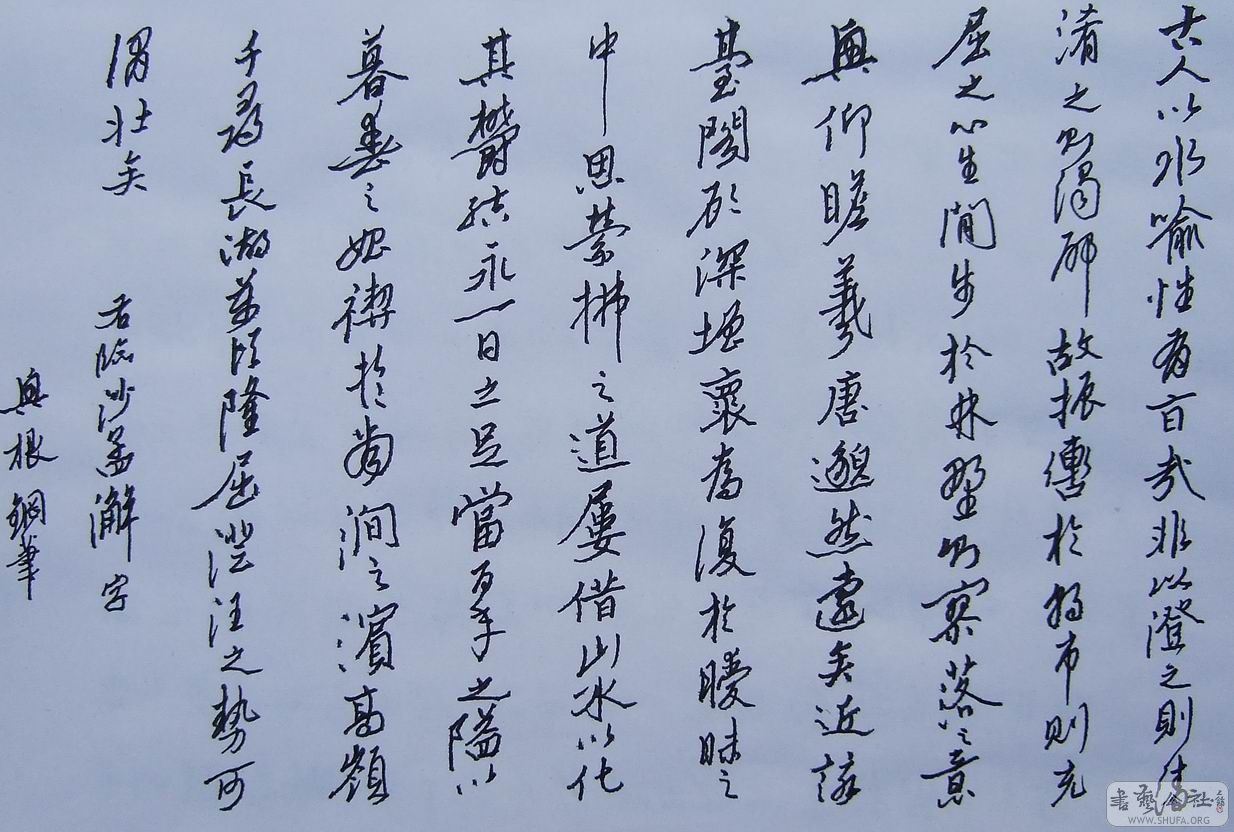 古人以水喻性有旨哉非以澄之則清
淆之則濁邪故振轡於朝市則充
屈之心生閒步於林野則寥落之意
興仰瞻羲唐邈然遠矣近詠
臺閣顧深增懷為復於曖昧之
中思縈拂之道屢借山水以化
其鬱結永一日之足當百年之溢以
暮春之始禊於南澗之濱高嶺
千尋長湖萬頃隆屈澄汪之勢可
謂壯矣 右臨沙孟澥字
興根鋼筆
書藝公社
WWW.SHUFA.ORG